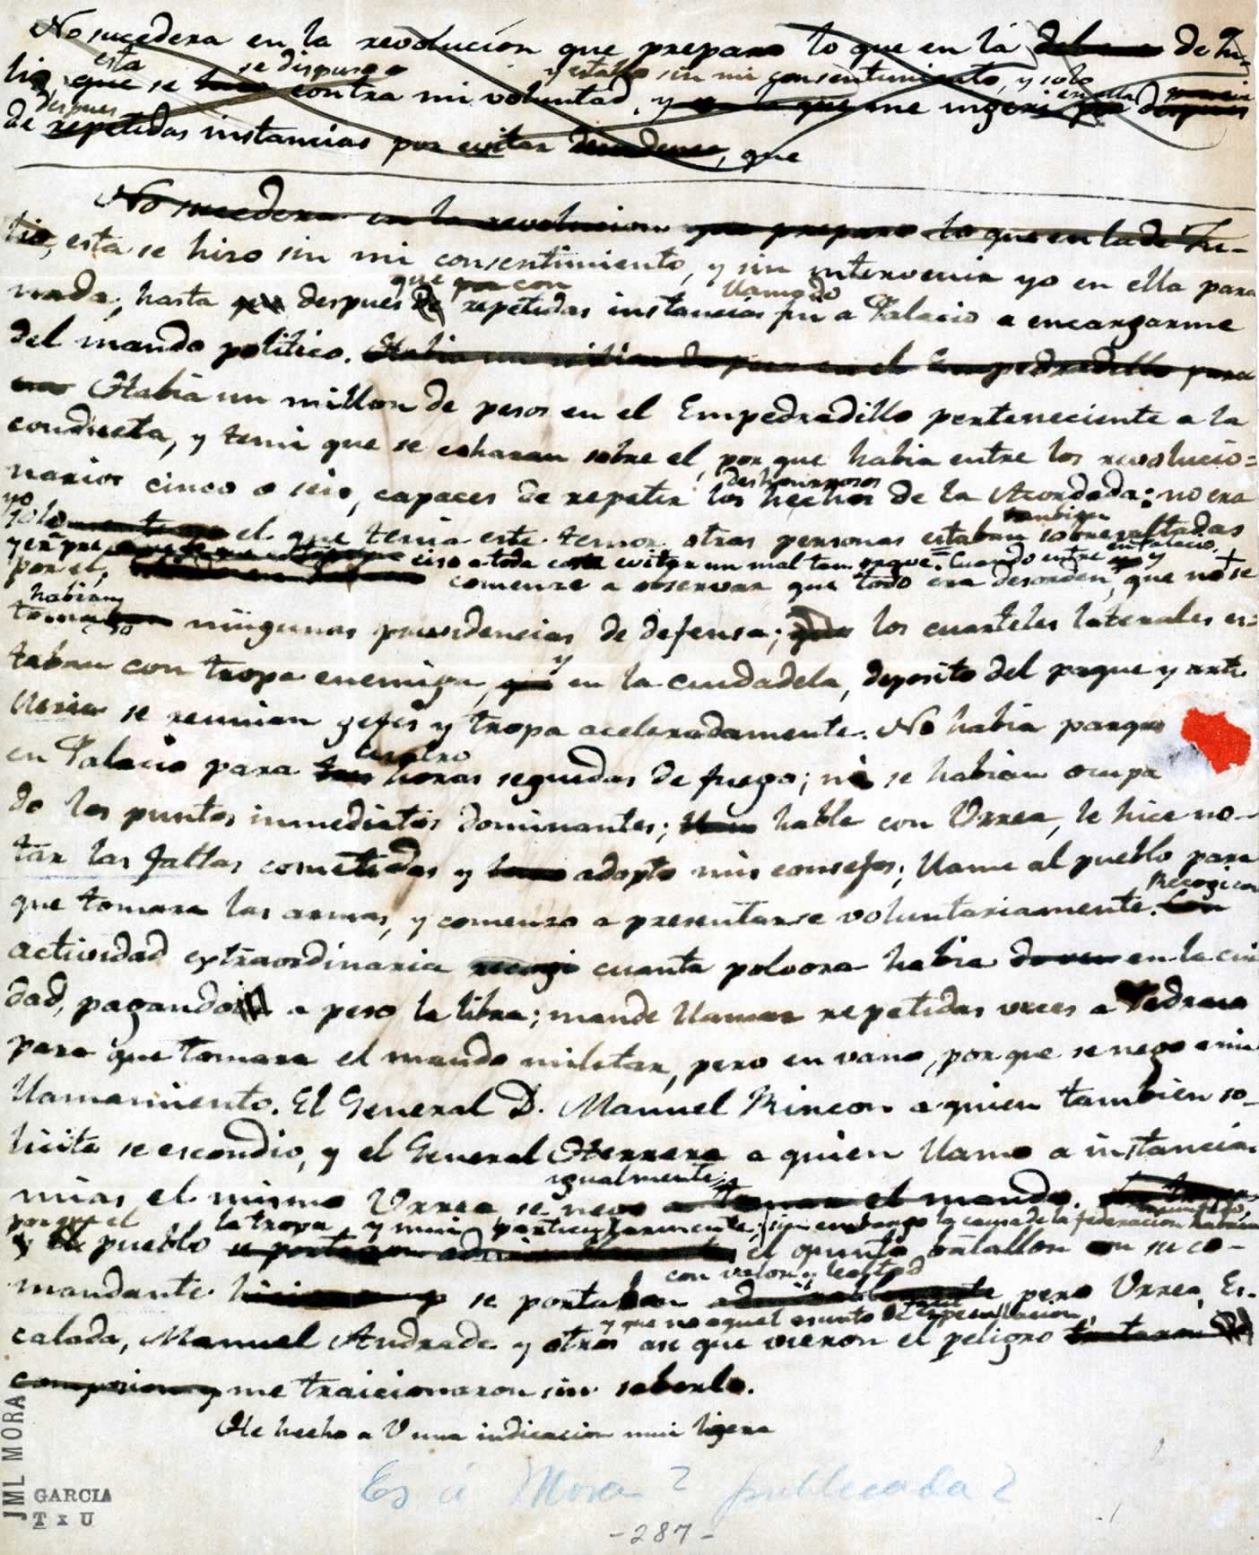 No sucedera en la revolución que preparo lo que en la de Ju-
esta se dispuso y estallo sin mi consentimiento, y solo
lio que se contra mi voluntad, y me ingeri en ella
despues
de repetidas instancias por evitar que
No sucedera en la revolucion que preparo lo que en la de Ju-
lio, esta se hizo sin mi consentimiento, y sin intervenir yo en ella para
que con llamado
nada; hasta despues de repetidas instancias fui a Palacio a encargarme
del mando politico. Habia un millon de pesos en el Empedradillo para
Habia un millon de pesos en el Empedradillo perteneciente a la
conducta, y temi que se echaran sobre el, por que habia entre los revolucio=
deshonrrosos
narios cinco o seis, capaces de repetir los hechos de la Acordada: no era
yo tambien
solo el que tenia este temor otras personas estaban sobresaltadas
y era pre ciso a toda costa evitar un mal tan grave. Cuando entre en Palacio y
por el, comenze a observar que todo era desorden, que no se
habian
tomado ningunas providencias de defensa; los cuarteles laterales es-
y
taban con tropa enemiga, en la ciudadela, deposito del parque y arti
lleria se reunian gefes y tropa aceleradamente. No habia parque
cuatro
en Palacio para horas seguidas de fuego; ni se habian ocupa
do los puntos inmediatos dominantes; hable con Urrea, le hice no-
tar las faltas cometidas y adopto mis consejos; llame al pueblo para
Recogi con
que tomara las armas, y comenzo a presentarse voluntariamente.
actividad extraordinaria recogi cuanta polvora habia en la ciu
dad, pagando a peso la libra; mande llamar repetidas veces a Pedraza
para que tomara el mando militar, pero en vano, por que se nego a mi
llamamiento. El General D. Manuel Rincon a quien tambien so-
licite se escondio, y el General Herrera a quien llamo a instancias
igualmente;
mias el mismo Urrea se nego a tomar el mando.
por que el la tropa, y mui particularmente, sin embargo la causa de la federacion habria
y el pueblo el quinto batallon con su co-
con valor y lealtad
mandante se portaban pero Urrea, Es-
y que no aquel asunto de especulacion,
calada, Manuel Andrade y otros asi que vieron el peligro trataron
me traicionaron sin saberlo.
He hecho a V una indicacion mui ligera
Es á Mora? publicada?
-287-
JML MORA
GARCIA
T x U